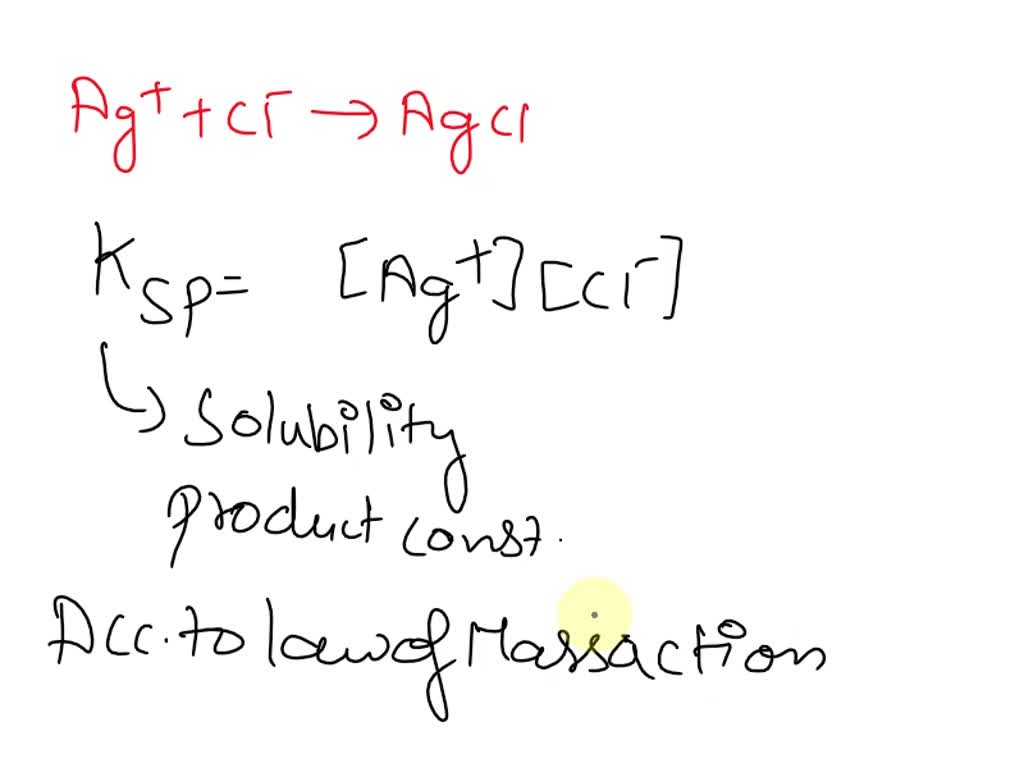 Ag⁺ + Cl⁻ → AgCl
Ksp = [Ag⁺][Cl⁻]
↳ Solubility
Product const.
Acc. to law of Mass action